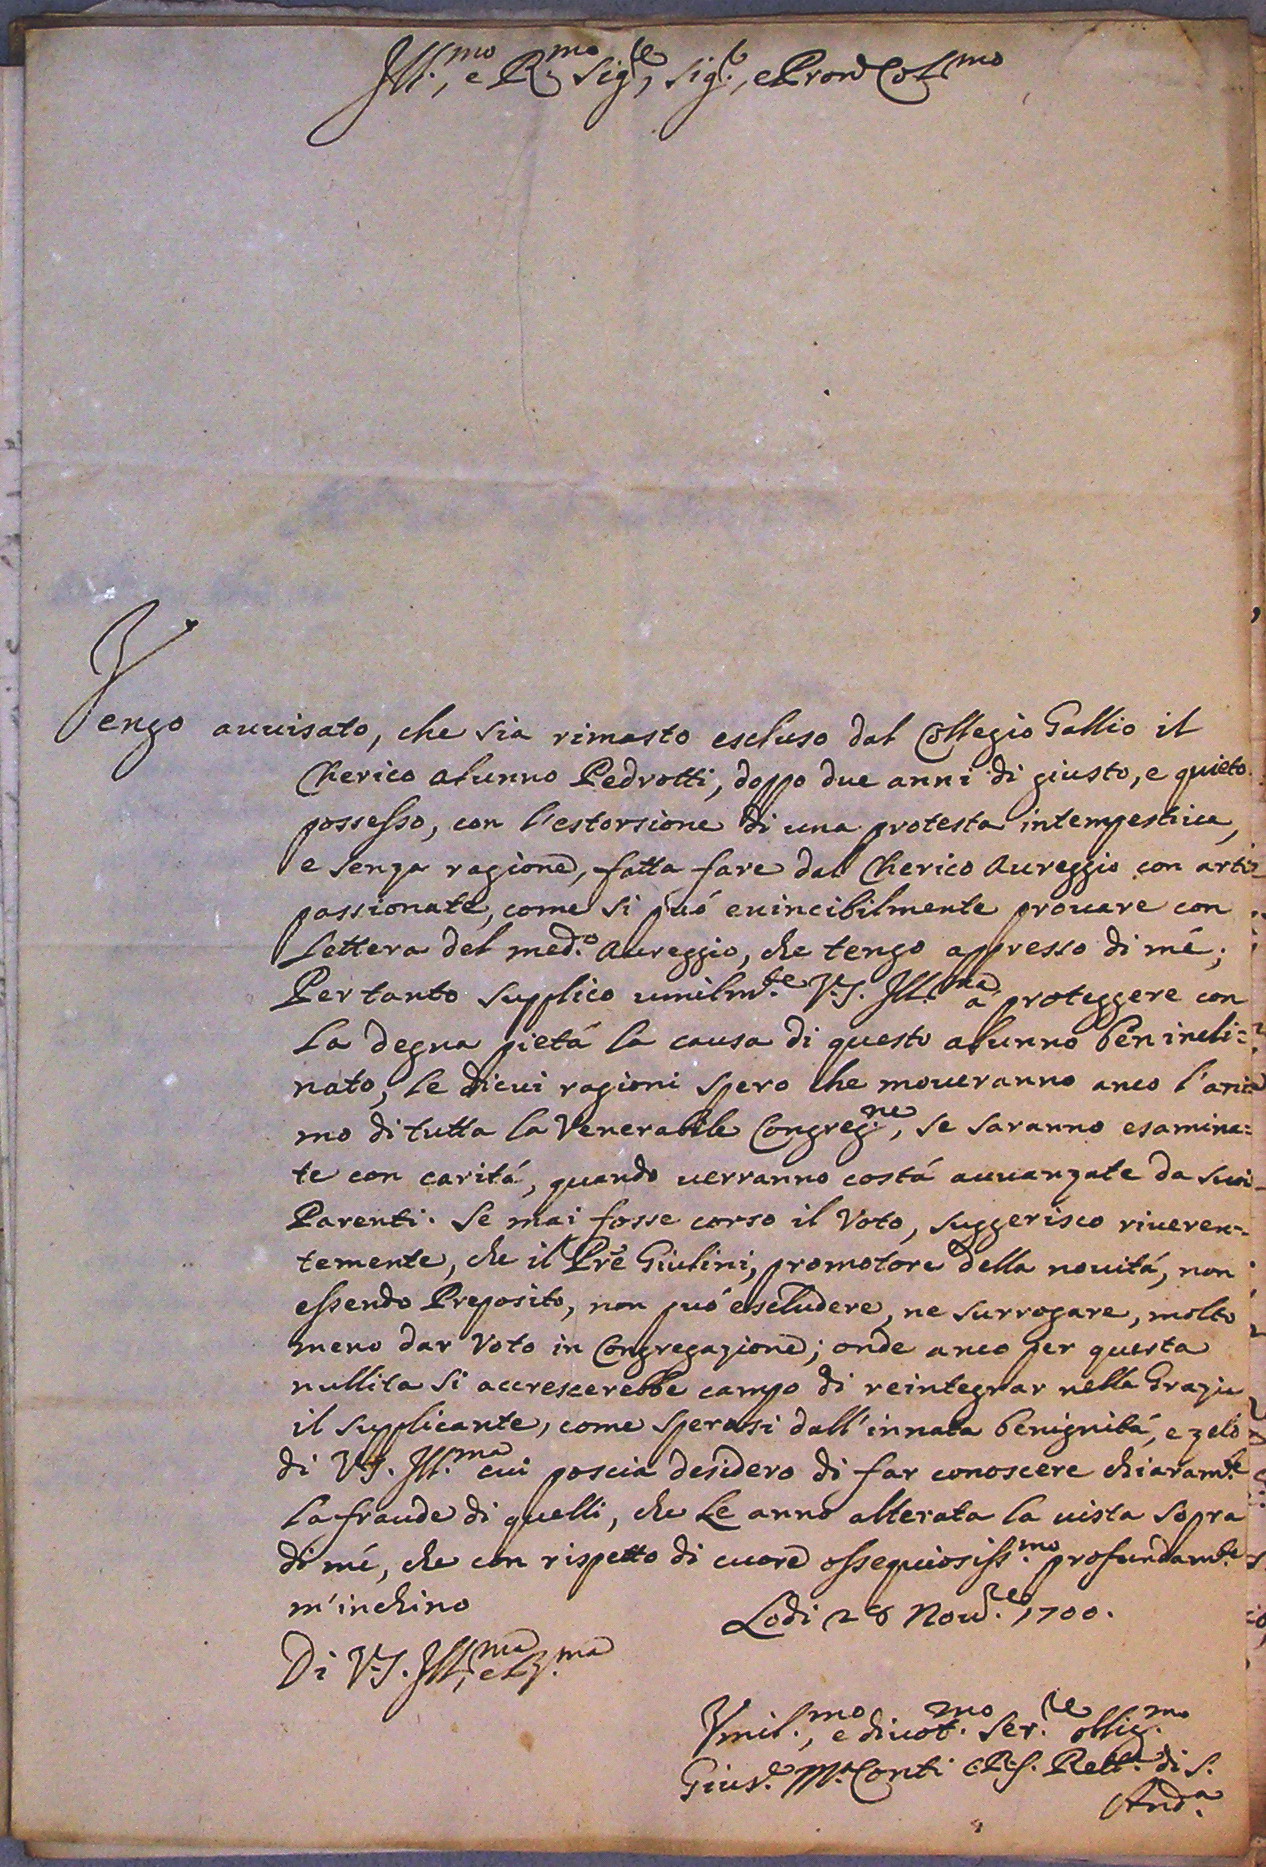 Ill.mo, e R.mo Sig.re, Sig.re, e Pron Col.mo
Vengo auuisato, che sia rimasto escluso dal Collegio Gallio il
Cherico alunno Pedrotti, doppo due anni di giusto, e quieto
possesso, con l'estorsione di una protesta intempestiua,
e senza ragione, fatta fare dal Cherico Aureggio con arti
passionate, come si può euincibilmente prouare con
lettera del med.o Aureggio, che tengo appresso di mé;
Per tanto supplico umilm.te V.S. Ill.ma a proteggere con
la degna pietá la causa di questo alunno ben incli=
nato, le dicui ragioni spero che moueranno anco l'ani=
mo di tutta la Venerabile Congreg.ne, se saranno esamina=
te con caritá, quando uerranno costá auuanzate da suoi
Parenti. Se mai fosse corso il Voto, suggerisco riueren=
temente, che il Pre Giulini, promotore della nouitá, non
essendo Preposito, non puó escludere, ne surrogare, molto
meno dar Voto in Congregazione; onde anco per questa
nullita si accrescerebbe campo di reintegrar nella Grazia
il supplicante, come sperasi dall'innata benignitá, e zelo
di V.S. Ill.ma cui poscia desidero di far conoscere chiaram.te
la fraude di quelli, che Le anno alterata la uista sopra
di mé, che con rispetto di cuore ossequiosiss.mo profundam.te
m'inchino
Lodi 28 Nou.re 1700.
Di V.S. Ill.ma, e R.ma
Vmil.mo, e diuot.mo Ser.re obblig.mo
Gius.e M.a Conti C.R.S. Rett.e di S.
And.a